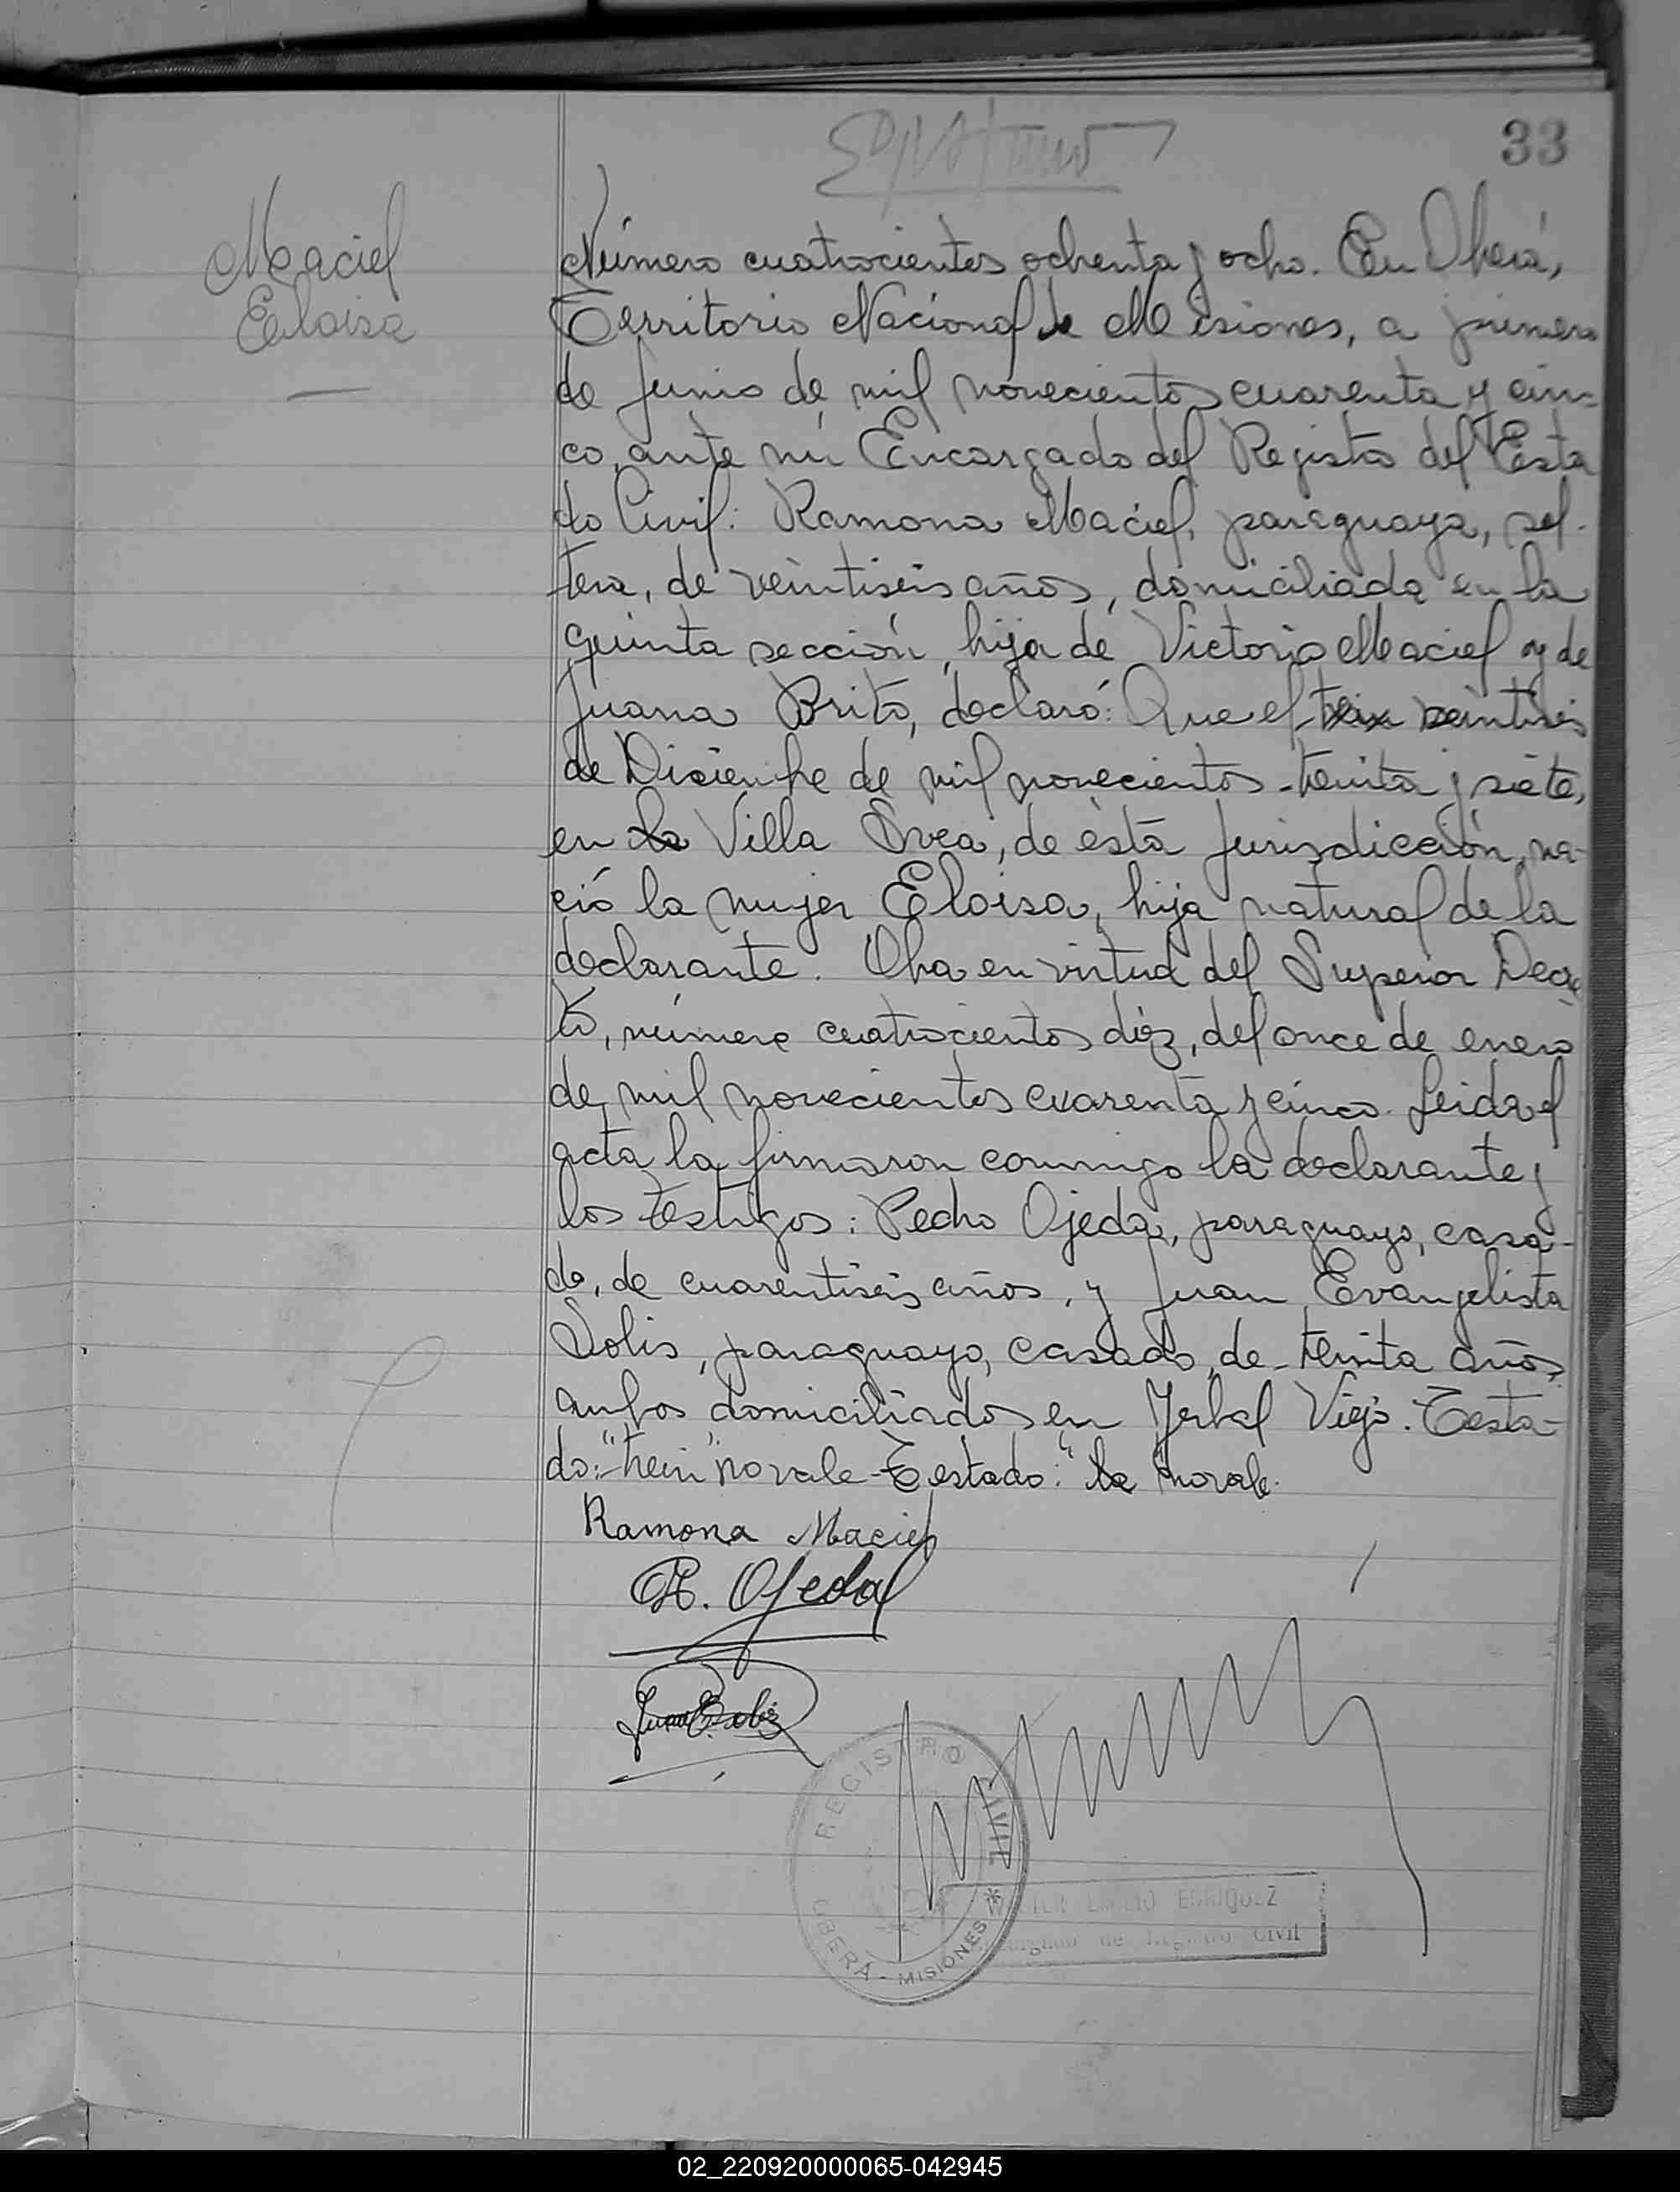 33
Maciel
Eloisa
Número cuatrocientos ochenta y ocho. En Oberá,
Territorio Nacional de Misiones, a primero
de Junio de mil novecientos cuarenta y cin=
co, ante mi Encargado del Registro del Esta
do Civil: Ramona Maciel, paraguaya, sol-
tera, de veintiseis años, domiciliada en la
quinta sección, hija de Victorio Maciel y de
Juana Brito, declaró: Que el trein veintiseis
de Diciembre de mil novecientos treinta y siete,
en la Villa Svea, de ésta Jurisdicción, na-
ció la mujer Eloisa, hija natural de la
declarante. Obra en virtud del Superior Decre
to, número cuatrocientos diez, del once de enero
de mil novecientos cuarenta y cinco. Leida el
acta la firmaron conmigo la declarante y
los testigos: Pedro Ojeda, paraguayo, casa-
do, de cuarentiseis años, y Juan Evangelista
Solis, paraguayo, casado, de treinta años,
ambos domiciliados en Yerbal Viejo. Testa-
do: "trein" no vale - Testado: "la" no vale.
Ramona Maciel
Ojeda
Juan E. Solis
REGISTRO CIVIL *
OBERÁ - MISIONES
ENRIQUEZ
Encargado de Registro Civil
02_220920000065-042945